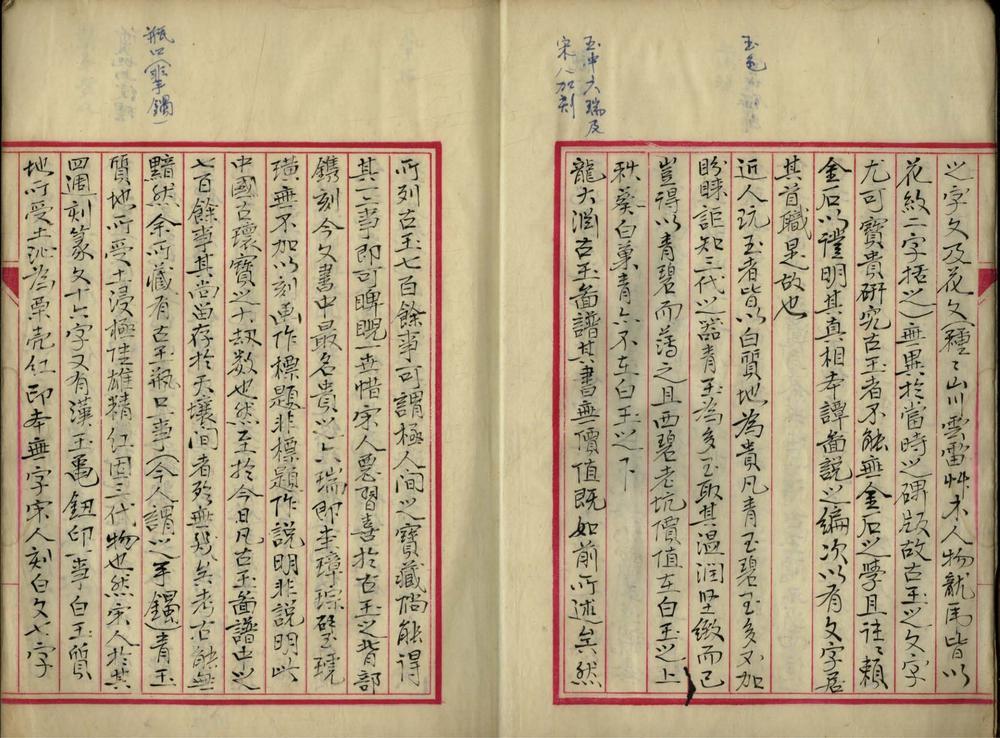 玉色
玉中六瑞及
宋人加刻
之字文及花文（種〻山川雲雷艸木人物龍馬皆以
花紋二字括之）無異於當時之碑版故古玉之文字
尤可寶貴研究古玉者不能無金石之學且往〻賴
金石以證明其真相本譚圖說之編次以有文字居
其首職是故也
近人玩玉者皆以白質地為貴凡青玉碧玉多不加
盼睞詎知三代之器青玉為多玉取其溫潤堅緻而已
豈得以青碧而薄之且西碧老坑價值在白玉之上
秋葵白菓青亦不在白玉之下
龍大淵古玉圖譜其書無價值既如前所述矣然
瓶口（非手鐲）
所列古玉七百餘事可謂極人间之寶藏倘能得
其一二事即可睥睨一世惜宋人惡習喜於古玉之背部
鐫刻今文書中最名貴之六瑞即圭璋琮璧琥
璜無不加以刻画作標題非標題作說明非說明此
中國古瓌寶之大劫数也然至於今日凡古玉圖譜中之
七百餘事其尚留存於天壤间者殆無幾矣考古能無
黯然余所藏有古玉瓶口一事（今人謂之手鐲）青玉
質地所受土浸極佳雄精紅因三代物也然宋人於其
四週刻篆文十六字又有漢玉龜鈕印一事白玉質
地所受土沁為栗壳红印本無字宋人刻白文七字